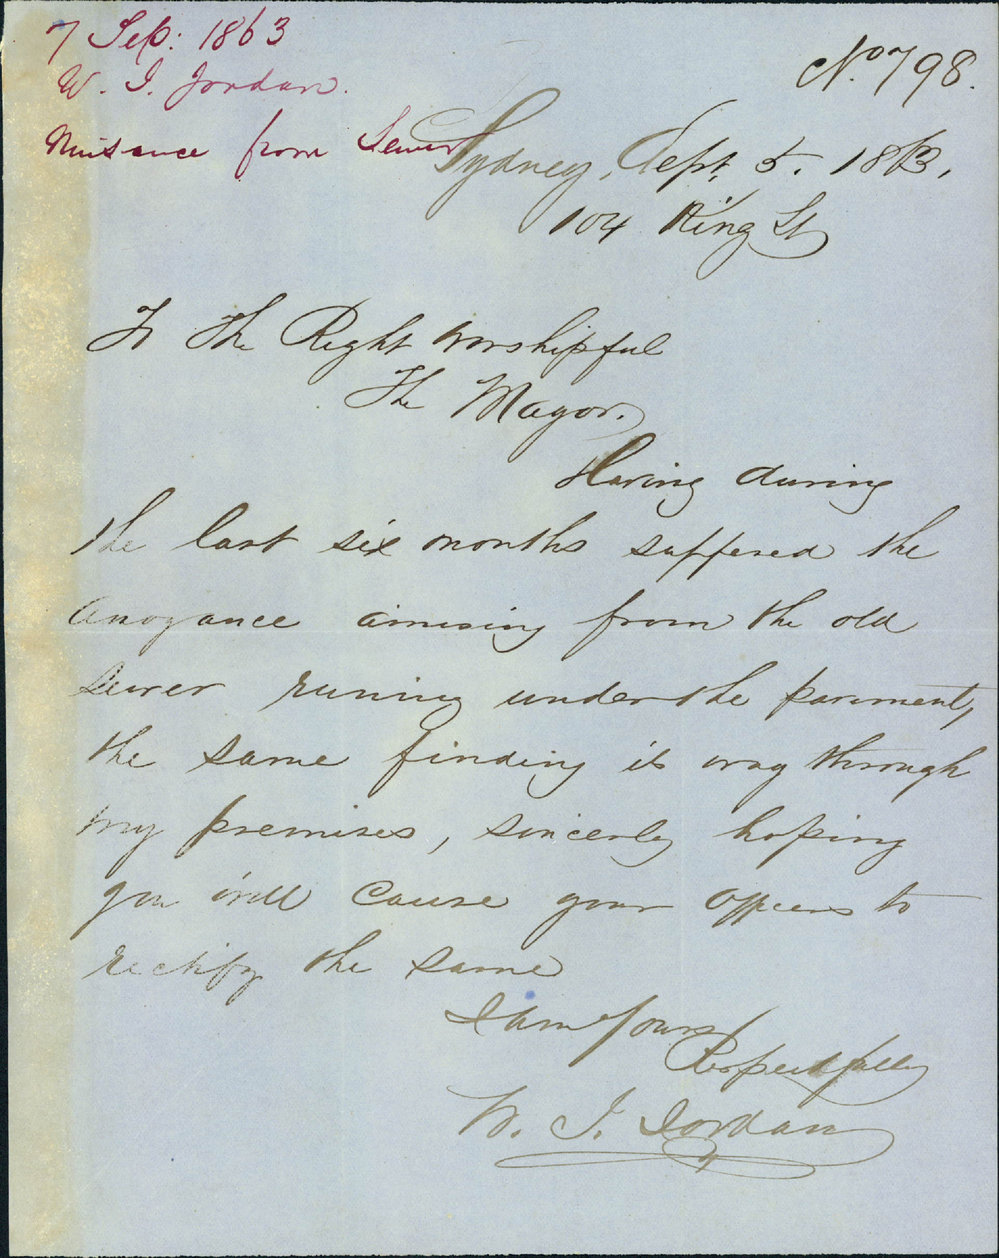 7 Sep: 1863
W. J. Jordan.
Nuisance from Sewer
No. 798.
Sydney, Sept. 5. 1863.
104 King St
To The Right Worshipful
The Mayor.
Having during
the last six months suffered the
anoyance arrising from the old
sewer runing under the pavement,
the same finding it way through
my premises, sincerly hoping
you will cause your officers to
rectify the same
I am Yours
Respectfully
W. J. Jordan